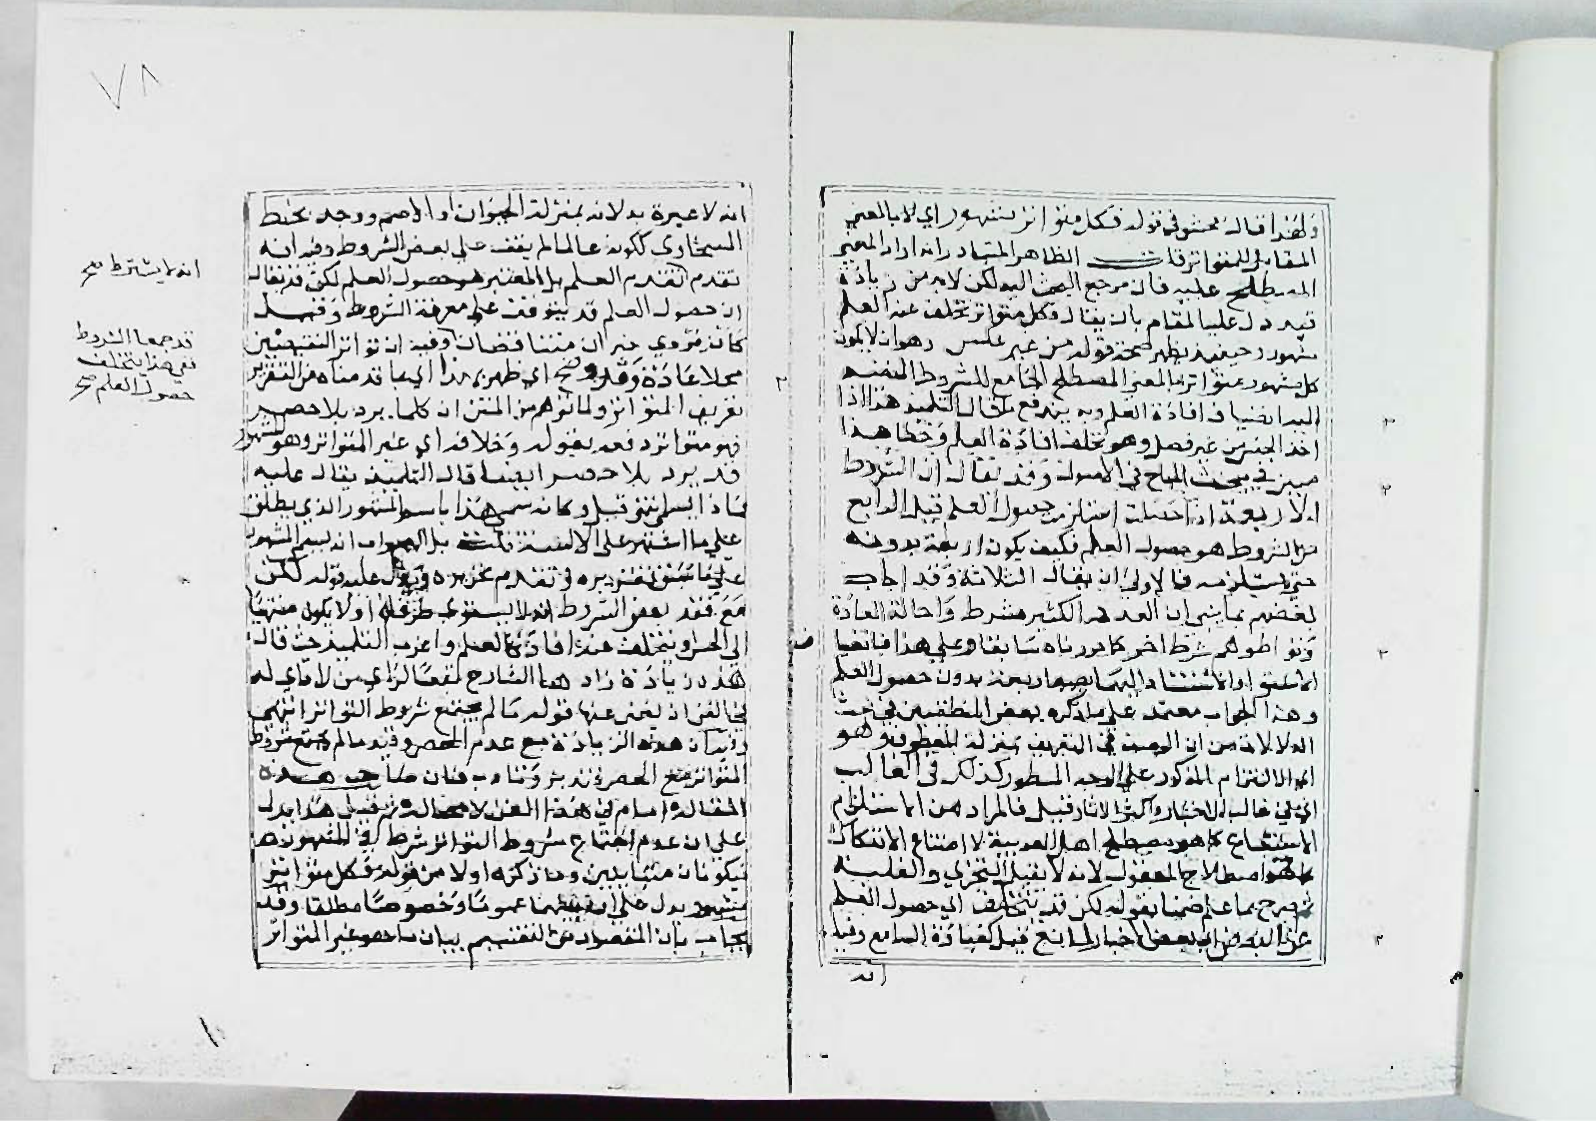 ولهذا قال محشو في قوله فكل متواتر مشهور اي لا بالمعنى
المقابل للمتواتر قلت الظاهر المتبادر انه اراد المعنى
المصطلح عليه فان مرجع البحث اليه لكن لابد من زيادة
قيد دل عليها المقام بان يقال فكل متواتر تخلف عنه العلم
مشهور وحينئذ يظهر صحة قوله من غير عكس وهو ان لا يكون
كل مشهور متواترا بالمعنى المصطلح الجامع للشروط المنضمة
اليه ايضا افادة العلم وبه يندفع ما قال التلميذ هذا اذا
اخذ الجنس من غير فصل وهو تخلف افادة العلم وخطأ هذا
مبين في بحث المباح في الاصول وقد يقال ان الشروط
الاربعة اذا حصلت استلزمت حصول العلم قيل الرابع
من الشروط هو حصول العلم فكيف يكون اربعة بدونه
حتى يستلزمه فالاولى ان يقال الثلاثة وقد اجاب
بعضهم بما ينبئ ان العدد الكثير شرط واحالة العادة
وتواطؤهم شرط اخر كما قررناه سابقا وعلى هذا فانضما
الاستواء والاستناد اليهما يصير اربعة بدون حصول العلم
وهذا الجواب معتمد على ما ذكره بعض المنطقيين في بحث
الدلالات من ان الوصف في التعريف بمنزلة المعطوف وهو
اي الالتزام المذكور على الوجه المسطور كذلك في الغالب
اي في غالب الاخبار واكثر الاثار قيل فالمراد من الاستلزام
الاستتباع كما هو مصطلح اهل العربية لا امتناع الانفكاك
كما هو اصطلاح المعقول لانه لا يقبل التجزي والغلبة
ثم صرح بما علم ضمنا بقوله لكن قد يتخلف اي حصول العلم
عن البعض اي بعض اخبار لمانع قيل كغباوة السامع وفيه
انه
٧٨
انه لا عبرة به لانه بمنزلة الحيوان او الاصم ووجد بخط
السخاوي ككونه عالما لم يقف على بعض الشروط وفيه انه
تقدم تقدم العلم بل المعتبر هو حصول العلم لكن قد يقال
ان حصول العلم قد يتوقف على معرفة الشروط وقيل
كان مروي خبران متناقضان وفيه ان تواتر النقيضين
محال عادة وقد وضح اي ظهر بهذا اي بما قدمناه من التقرير
تعريف المتواتر ولما توهم من المتن ان كلما يرد بلا حصر
فهو متواتر دفعه بقوله وخلافه اي غير المتواتر وهو المشهور
قد يرد بلا حصر ايضا قال التلميذ يقال عليه
على ما اشتهر على الالسنة قلت بل الصواب انه يسمى المشهور
على ما سبق تقريره وتقدم تحريره ويؤول عليه قوله لكن
مع فقد بعض الشروط اي لا يستوي طرفاه او لا يكون منتهيا
الى الحس او يتخلف عنه افادة العلم واغرب التلميذ حيث قال
هذه زيادة زادها الشارح لم يقصد الراي من لا راي له
في الفن ان يغني عنها قوله ما لم يجتمع شروط التواتر انتهى
وفيه ان هذه الزيادة مع عدم الحصر وقيد ما لم يجتمع شروط
التواتر مع الحصر فتدبر وتادب فان صاحب هذه
المقالة امام في هذا الفن لا محالة ثم قيل هذا يدل
على ان عدم اجتماع شروط التواتر شرط في المشهور
فيكونان متباينين وما ذكره اولا من قوله فكل متواتر
مشهور يدل على ان بينهما عموما وخصوصا مطلقا وقد
يجاب بان المقصود من التقسيم بيان ما هو غير المتواتر
انه لا يشترط صح
قد جمعا الشروط
ففي هذا يتخلف
حصول العلم صح